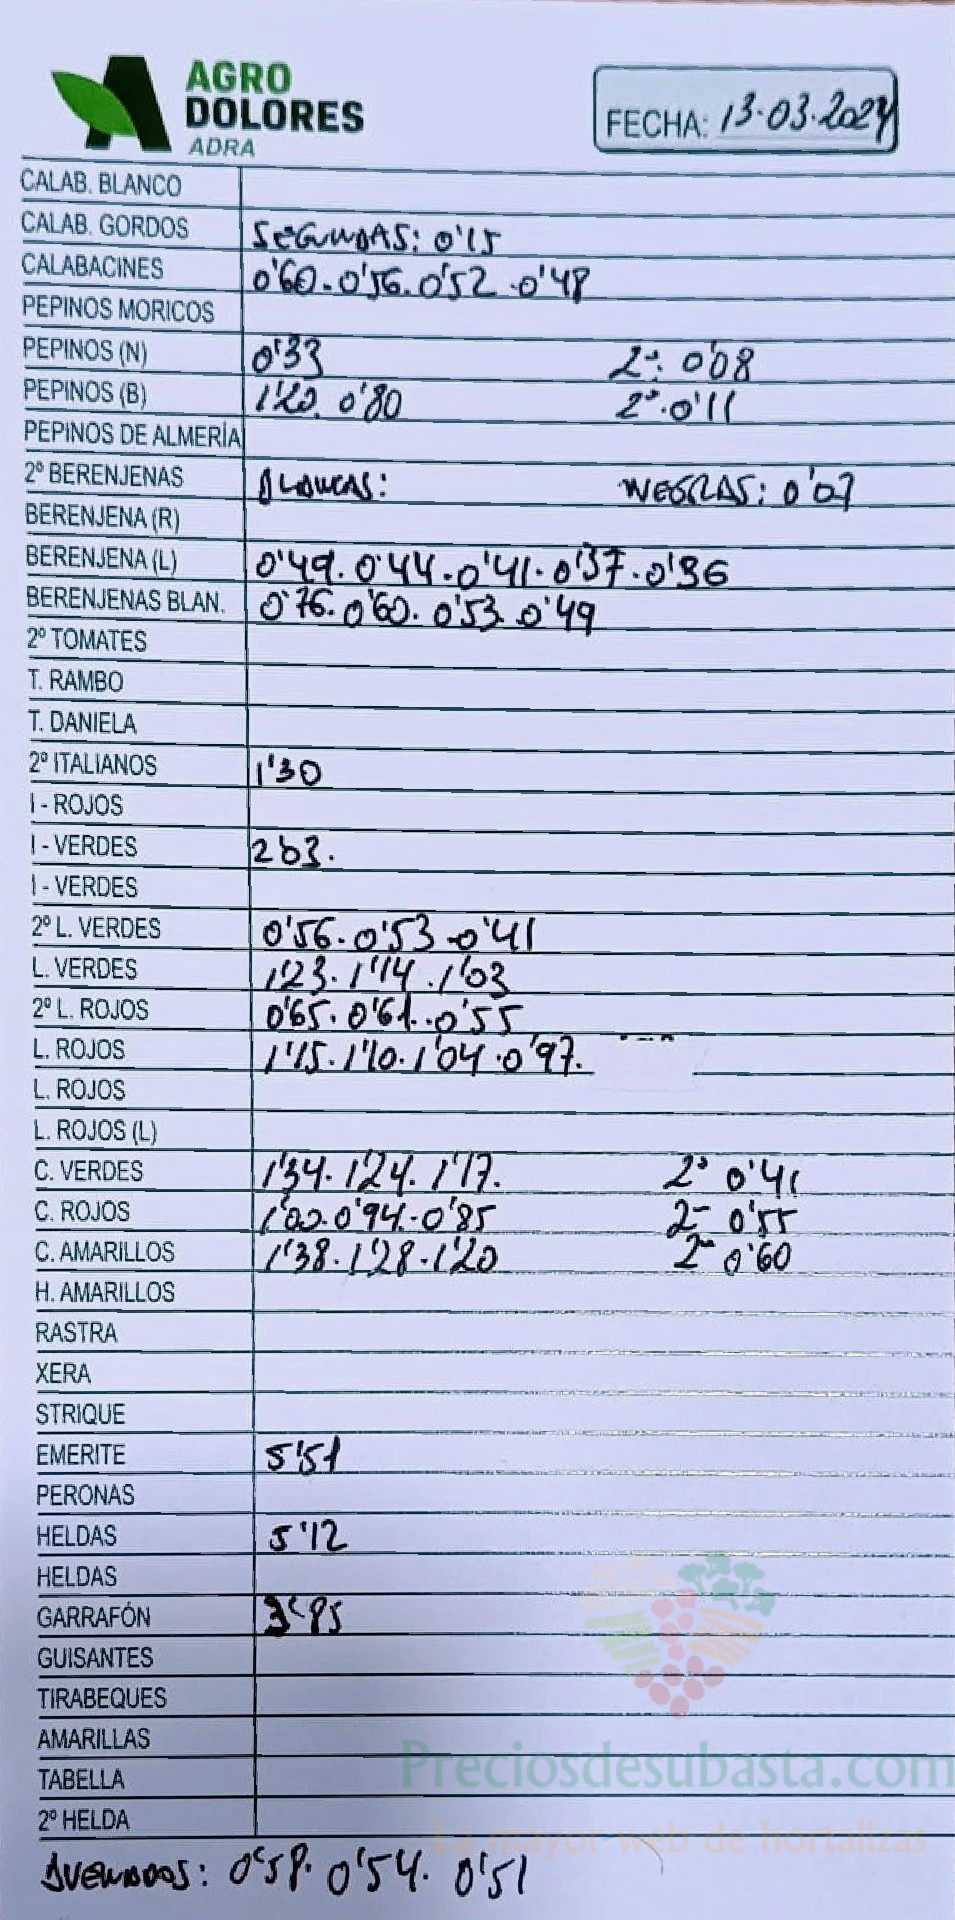 AGRO
DOLORES
ADRA
FECHA: 13.03.2024
CALAB. BLANCO
CALAB. GORDOS SEGUNDAS: 0'15
CALABACINES 0'60.0'56.0'52.0'48
PEPINOS MORICOS
PEPINOS (N) 0'33 2ª: 0'08
PEPINOS (B) 1'20. 0'80 2ª.0'11
PEPINOS DE ALMERÍA
2º BERENJENAS BLANCAS: NEGRAS: 0'07
BERENJENA (R)
BERENJENA (L) 0'49.0'44.0'41.0'37.0'36
BERENJENAS BLAN. 0'76.0'60.0'53.0'49
2º TOMATES
T. RAMBO
T. DANIELA
2º ITALIANOS 1'30
I - ROJOS
I - VERDES 2'03.
I - VERDES
2º L. VERDES 0'56.0'53.0'41
L. VERDES 1'23.1'14.1'03
2º L. ROJOS 0'65.0'61..0'55
L. ROJOS 1'15.1'10.1'04.0'97.
L. ROJOS
L. ROJOS (L)
C. VERDES 1'34.1'24.1'17. 2ª 0'41
C. ROJOS 1'00.0'94.0'85 2ª 0'55
C. AMARILLOS 1'38.1'28.1'20 2ª 0'60
H. AMARILLOS
RASTRA
XERA
STRIQUE
EMERITE 5'51
PERONAS
HELDAS 5'12
HELDAS
GARRAFÓN 3'85
GUISANTES
TIRABEQUES
AMARILLAS
TABELLA
Preciosdesubasta.com
2º HELDA
La mayor web de hortalizas
0'58. 0'54. 0'51